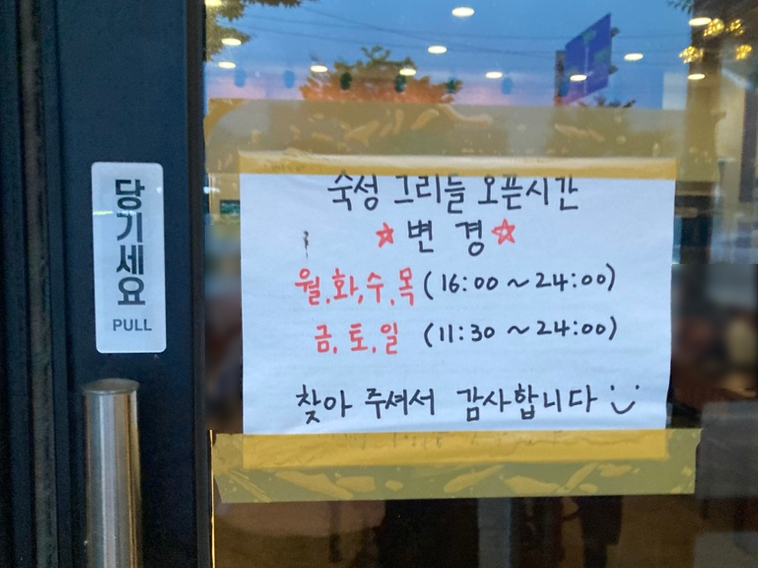 당기세요
PULL
숙성 그리들 오픈시간
☆변경☆
월,화,수,목 (16:00 ~ 24:00)
금,토,일 (11:30 ~ 24:00)
찾아 주셔서 감사합니다